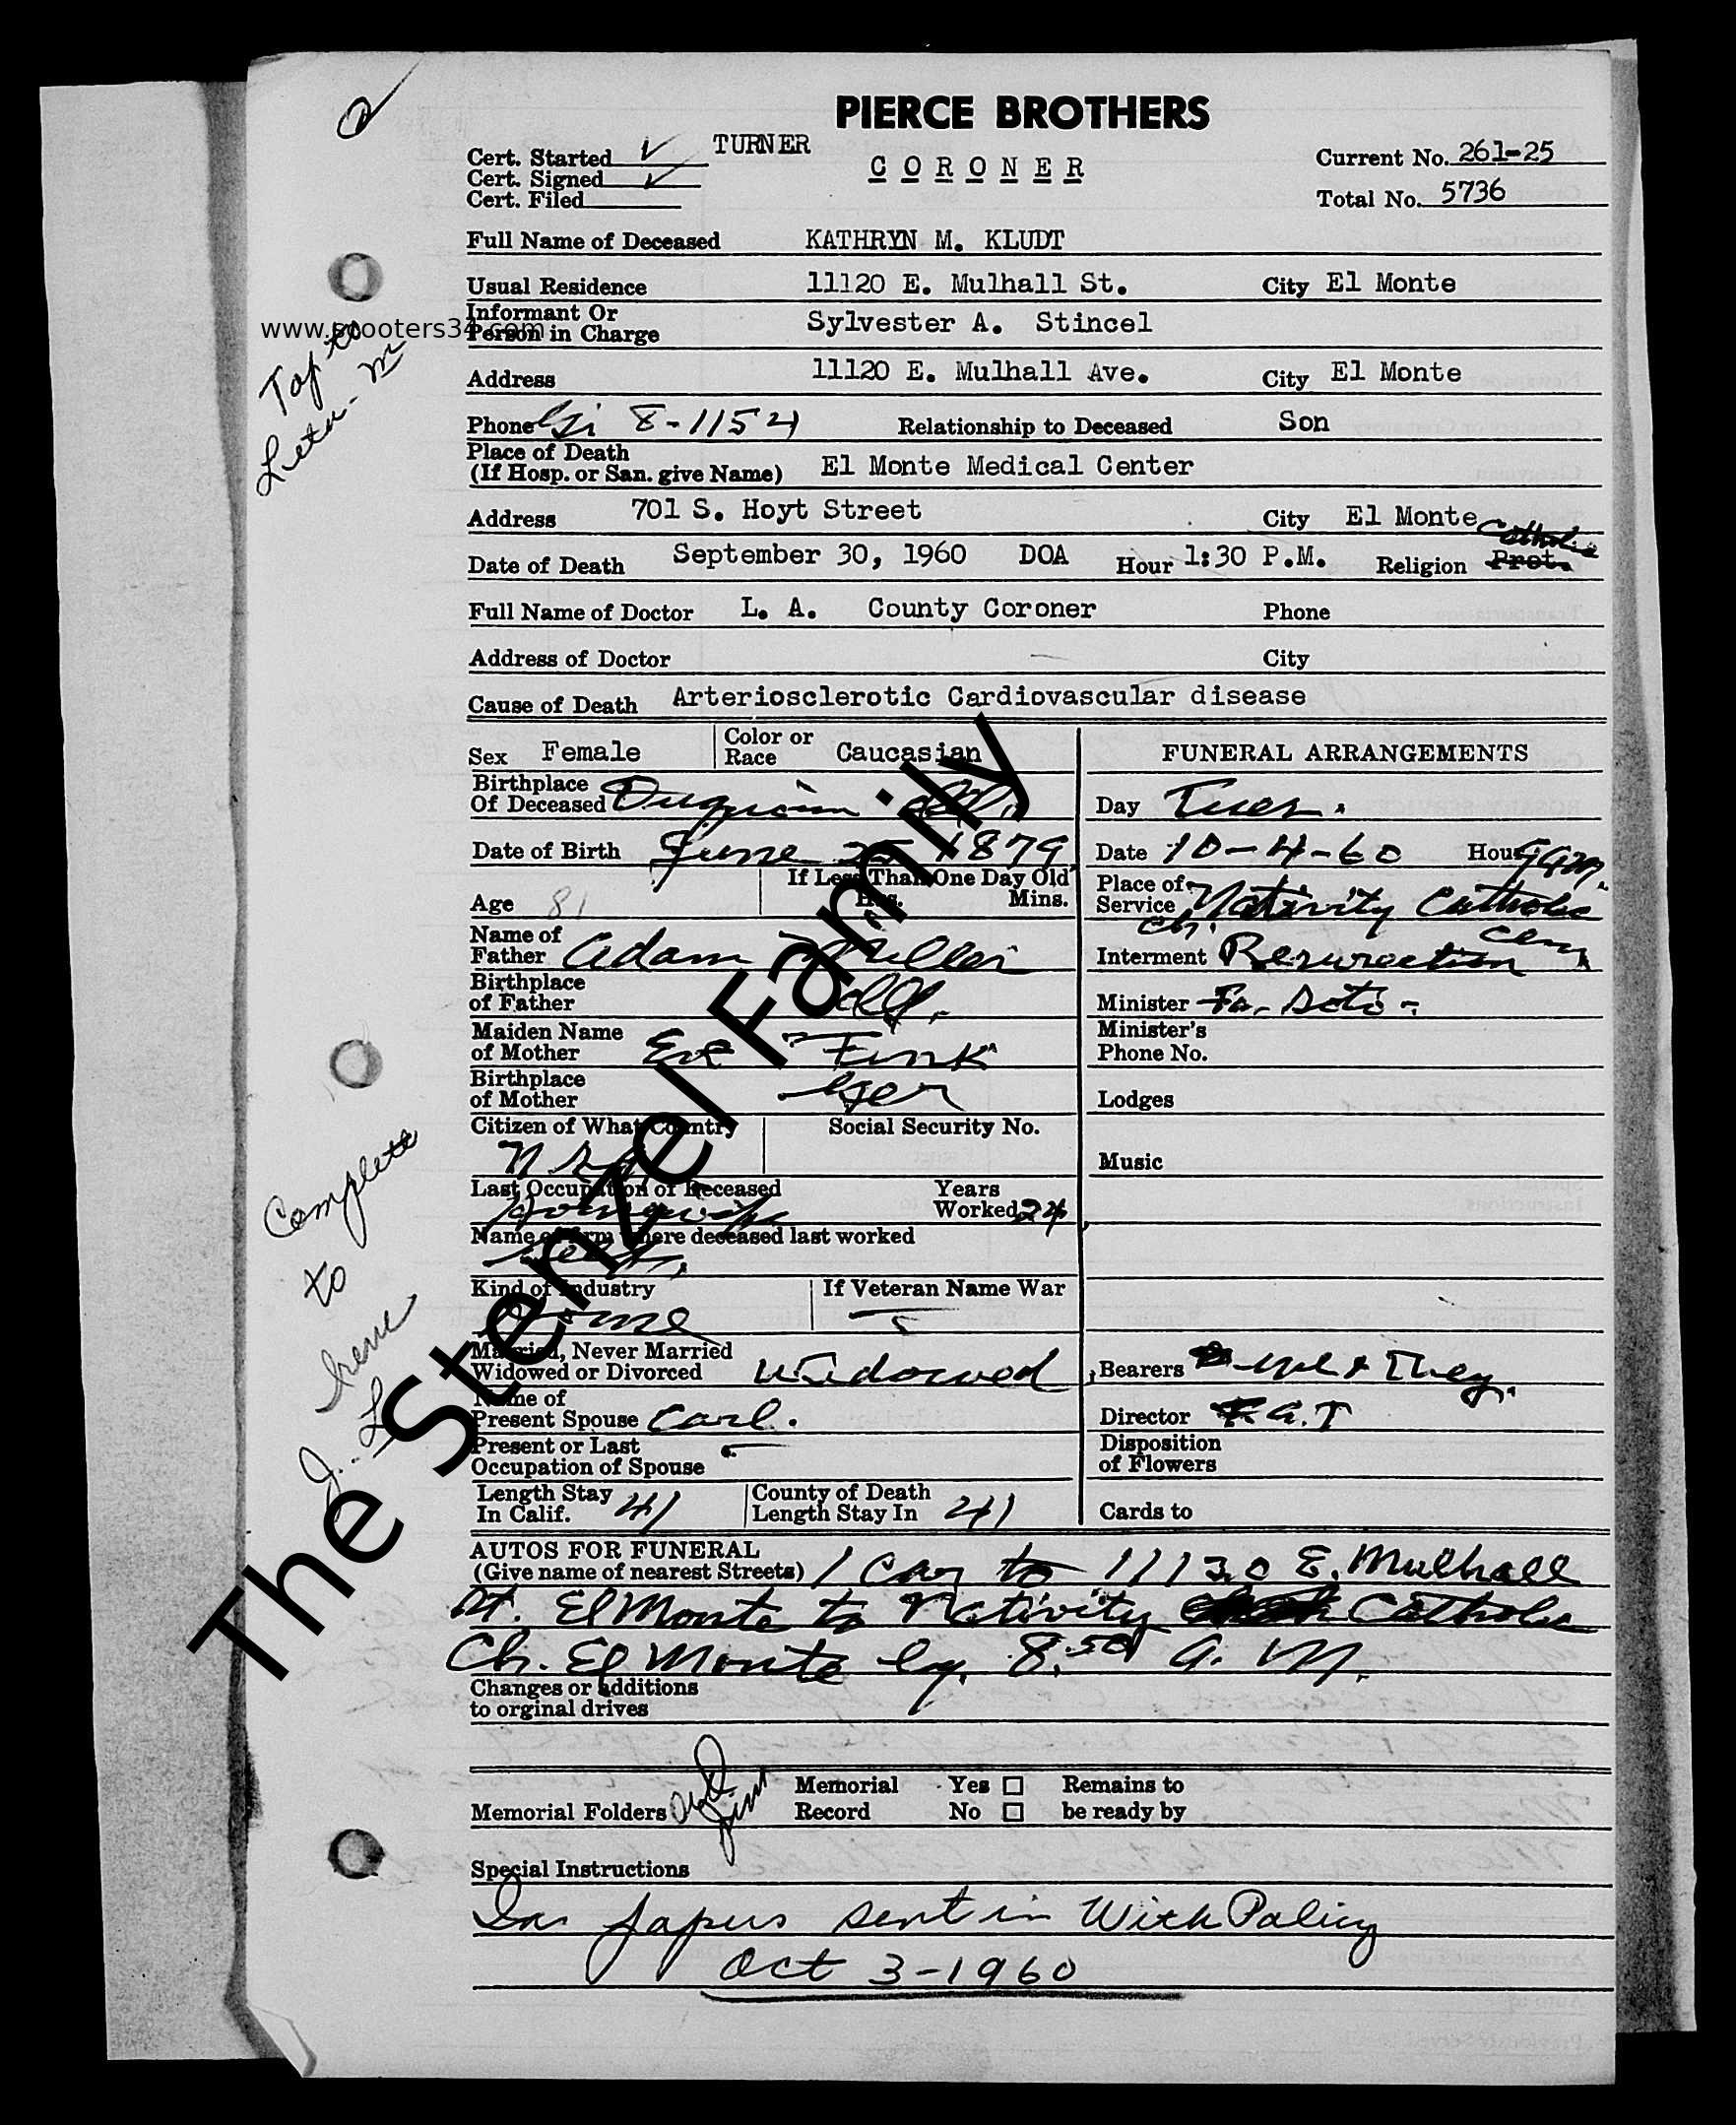 PIERCE BROTHERS
TURNER
CORONER
Cert. Started ✓
Cert. Signed ✓
Cert. Filed
Current No. 261-25
Total No. 5736
Full Name of Deceased KATHRYN M. KLUDT
Usual Residence 11120 E. Mulhall St. City El Monte
Informant Or
Person in Charge Sylvester A. Stincel
www.scooters34.com
Address 11120 E. Mulhall Ave. City El Monte
Phone Gi 8-1154 Relationship to Deceased Son
Place of Death
(If Hosp. or San. give Name) El Monte Medical Center
Address 701 S. Hoyt Street City El Monte
Date of Death September 30, 1960 DOA Hour 1:30 P.M. Religion Prot. Catholic
Full Name of Doctor L. A. County Coroner Phone
Address of Doctor City
Cause of Death Arteriosclerotic Cardiovascular disease
Sex Female Color or Race Caucasian
Birthplace
Of Deceased
Date of Birth June 25 1879
Age 81 If Less Than One Day Old
Hrs. Mins.
Name of
Father Adam Miller
Birthplace
of Father
Maiden Name
of Mother Eve Fink
Birthplace
of Mother Ger
Citizen of What Country Social Security No.
Last Occupation of Deceased Housewife Years
Worked 24
Name of Firm where deceased last worked
Kind of Industry Home If Veteran Name War
Married, Never Married
Widowed or Divorced Widowed
Name of
Present Spouse Carl.
Present or Last
Occupation of Spouse
Length Stay
In Calif. 41
County of Death
Length Stay In 41
FUNERAL ARRANGEMENTS
Day Tues.
Date 10-4-60 Hour 9 AM.
Place of
Service Nativity Catholic
Ch.
Interment Resurrection Cem
Minister Fr. Soto
Minister's
Phone No.
Lodges
Music
Bearers
Director G.T
Disposition
of Flowers
Cards to
AUTOS FOR FUNERAL
(Give name of nearest Streets) 1 Car to 11120 E. Mulhall
St. El Monte to Nativity Catholic
Ch. El Monte by 8:50 A.M.
Changes or additions
to orginal drives
Memorial Folders
Memorial
Record
Yes
No
Remains to
be ready by
Special Instructions
Ins papers sent in With Policy
Oct 3-1960
Complete
to
Irene
The Stenzel Family